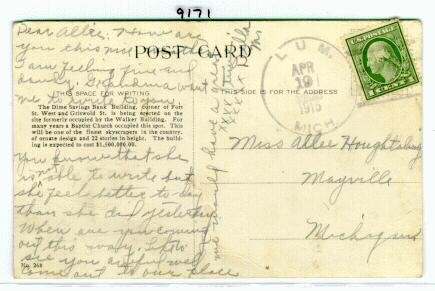 9171
Dear Allie, How are
you this
POST CARD
I am feeling fine and
dandy. Grandma want
me to write to you.
THIS SPACE FOR WRITING
SIDE IS FOR THE ADDRESS
The Dime Savings Bank Building, corner of Fort
St. West and Griswold St. is being erected on the
site formerly occupied by the Walker Building. For
many years a Baptist Church occupied this spot. This
will be one of the finest skyscrapers in the country,
of ornate design and 22 stories in height. The build-
ing is expected to cost $1,500,000.00.
You know that she
is able to write but
she feels better to-day
than she did yesterday
When are you coming
out this way. Like to
see you awful well
Come out to our place
No. 268
we would have a
LUM
APR
19
1915
MICH
U.S. POSTAGE
Miss Allie Houghtaling
Mayville
Michigan